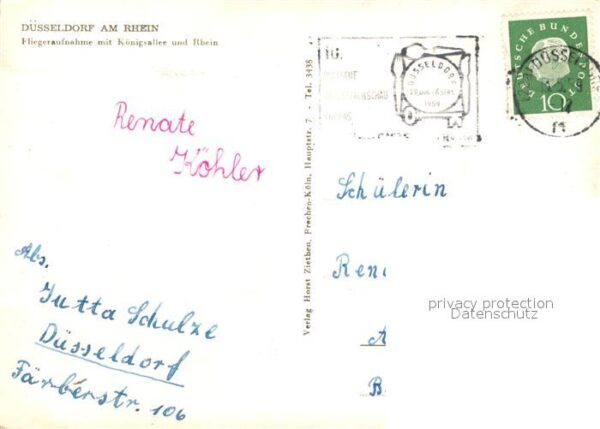 DÜSSELDORF AM RHEIN
Fliegeraufnahme mit Königsallee und Rhein
Renate
Köhler
Abs.
Jutta Schulze
Düsseldorf
Färberstr. 106
Verlag Horst Ziethen, Frechen-Köln, Hauptstr. 7 · Tel. 3438
10.
DÜSSELDORF
1959
DEUTSCHE BUNDESPOST
10
Schülerin
Ren
privacy protection
Datenschutz
A
B